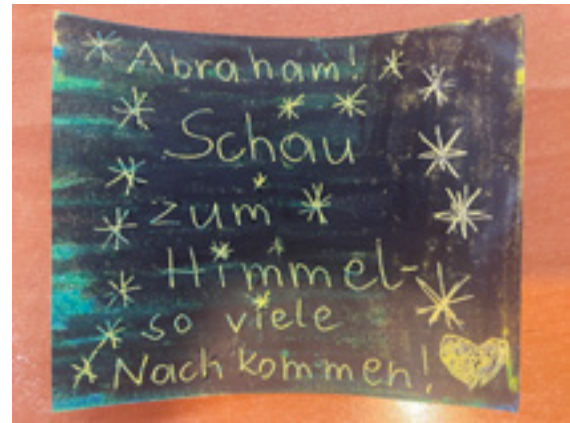 Abraham!
Schau
zum
Himmel-
so viele
Nachkommen!